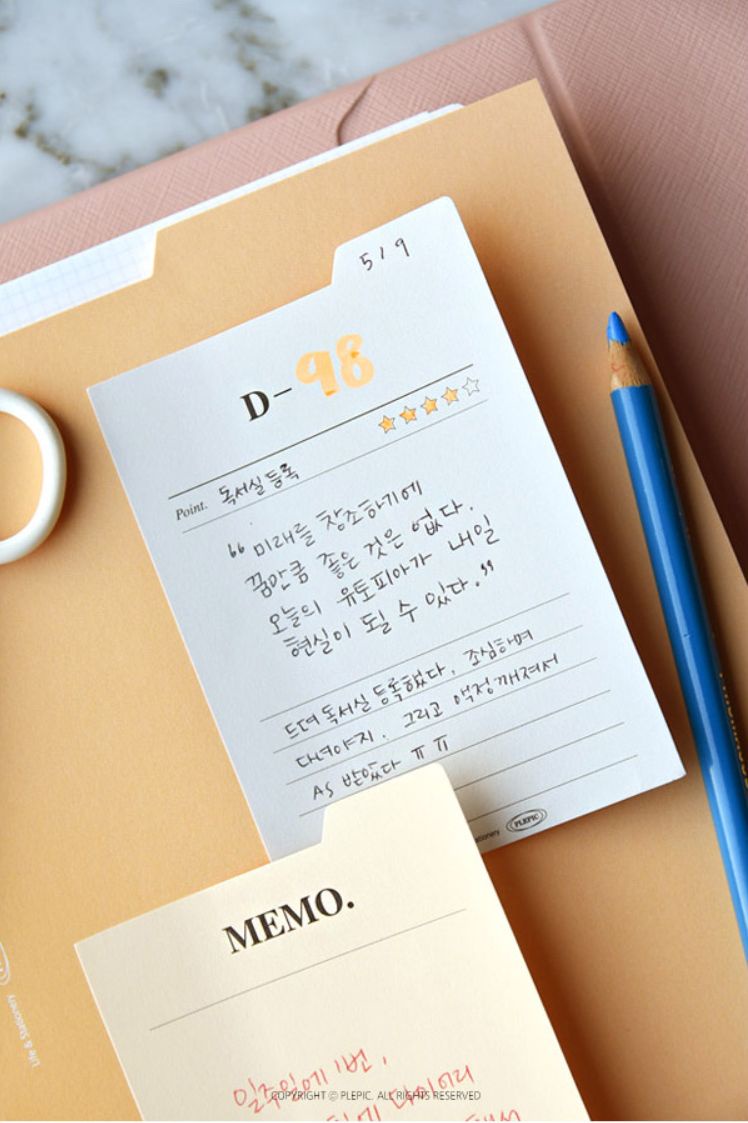 5/9
D-98
Point. 독서실 등록
“ 미래를 창조하기에
꿈만큼 좋은 것은 없다.
오늘의 유토피아가 내일
현실이 될 수 있다.”
드뎌 독서실 등록했다. 조심하며
다녀야지. 그리고 액정 깨져서
AS 받았다 ㅠㅠ
PLEPIC
MEMO.
일주일에 1번,
다이어리
Life & Stationery
COPYRIGHT © PLEPIC. ALL RIGHTS RESERVED